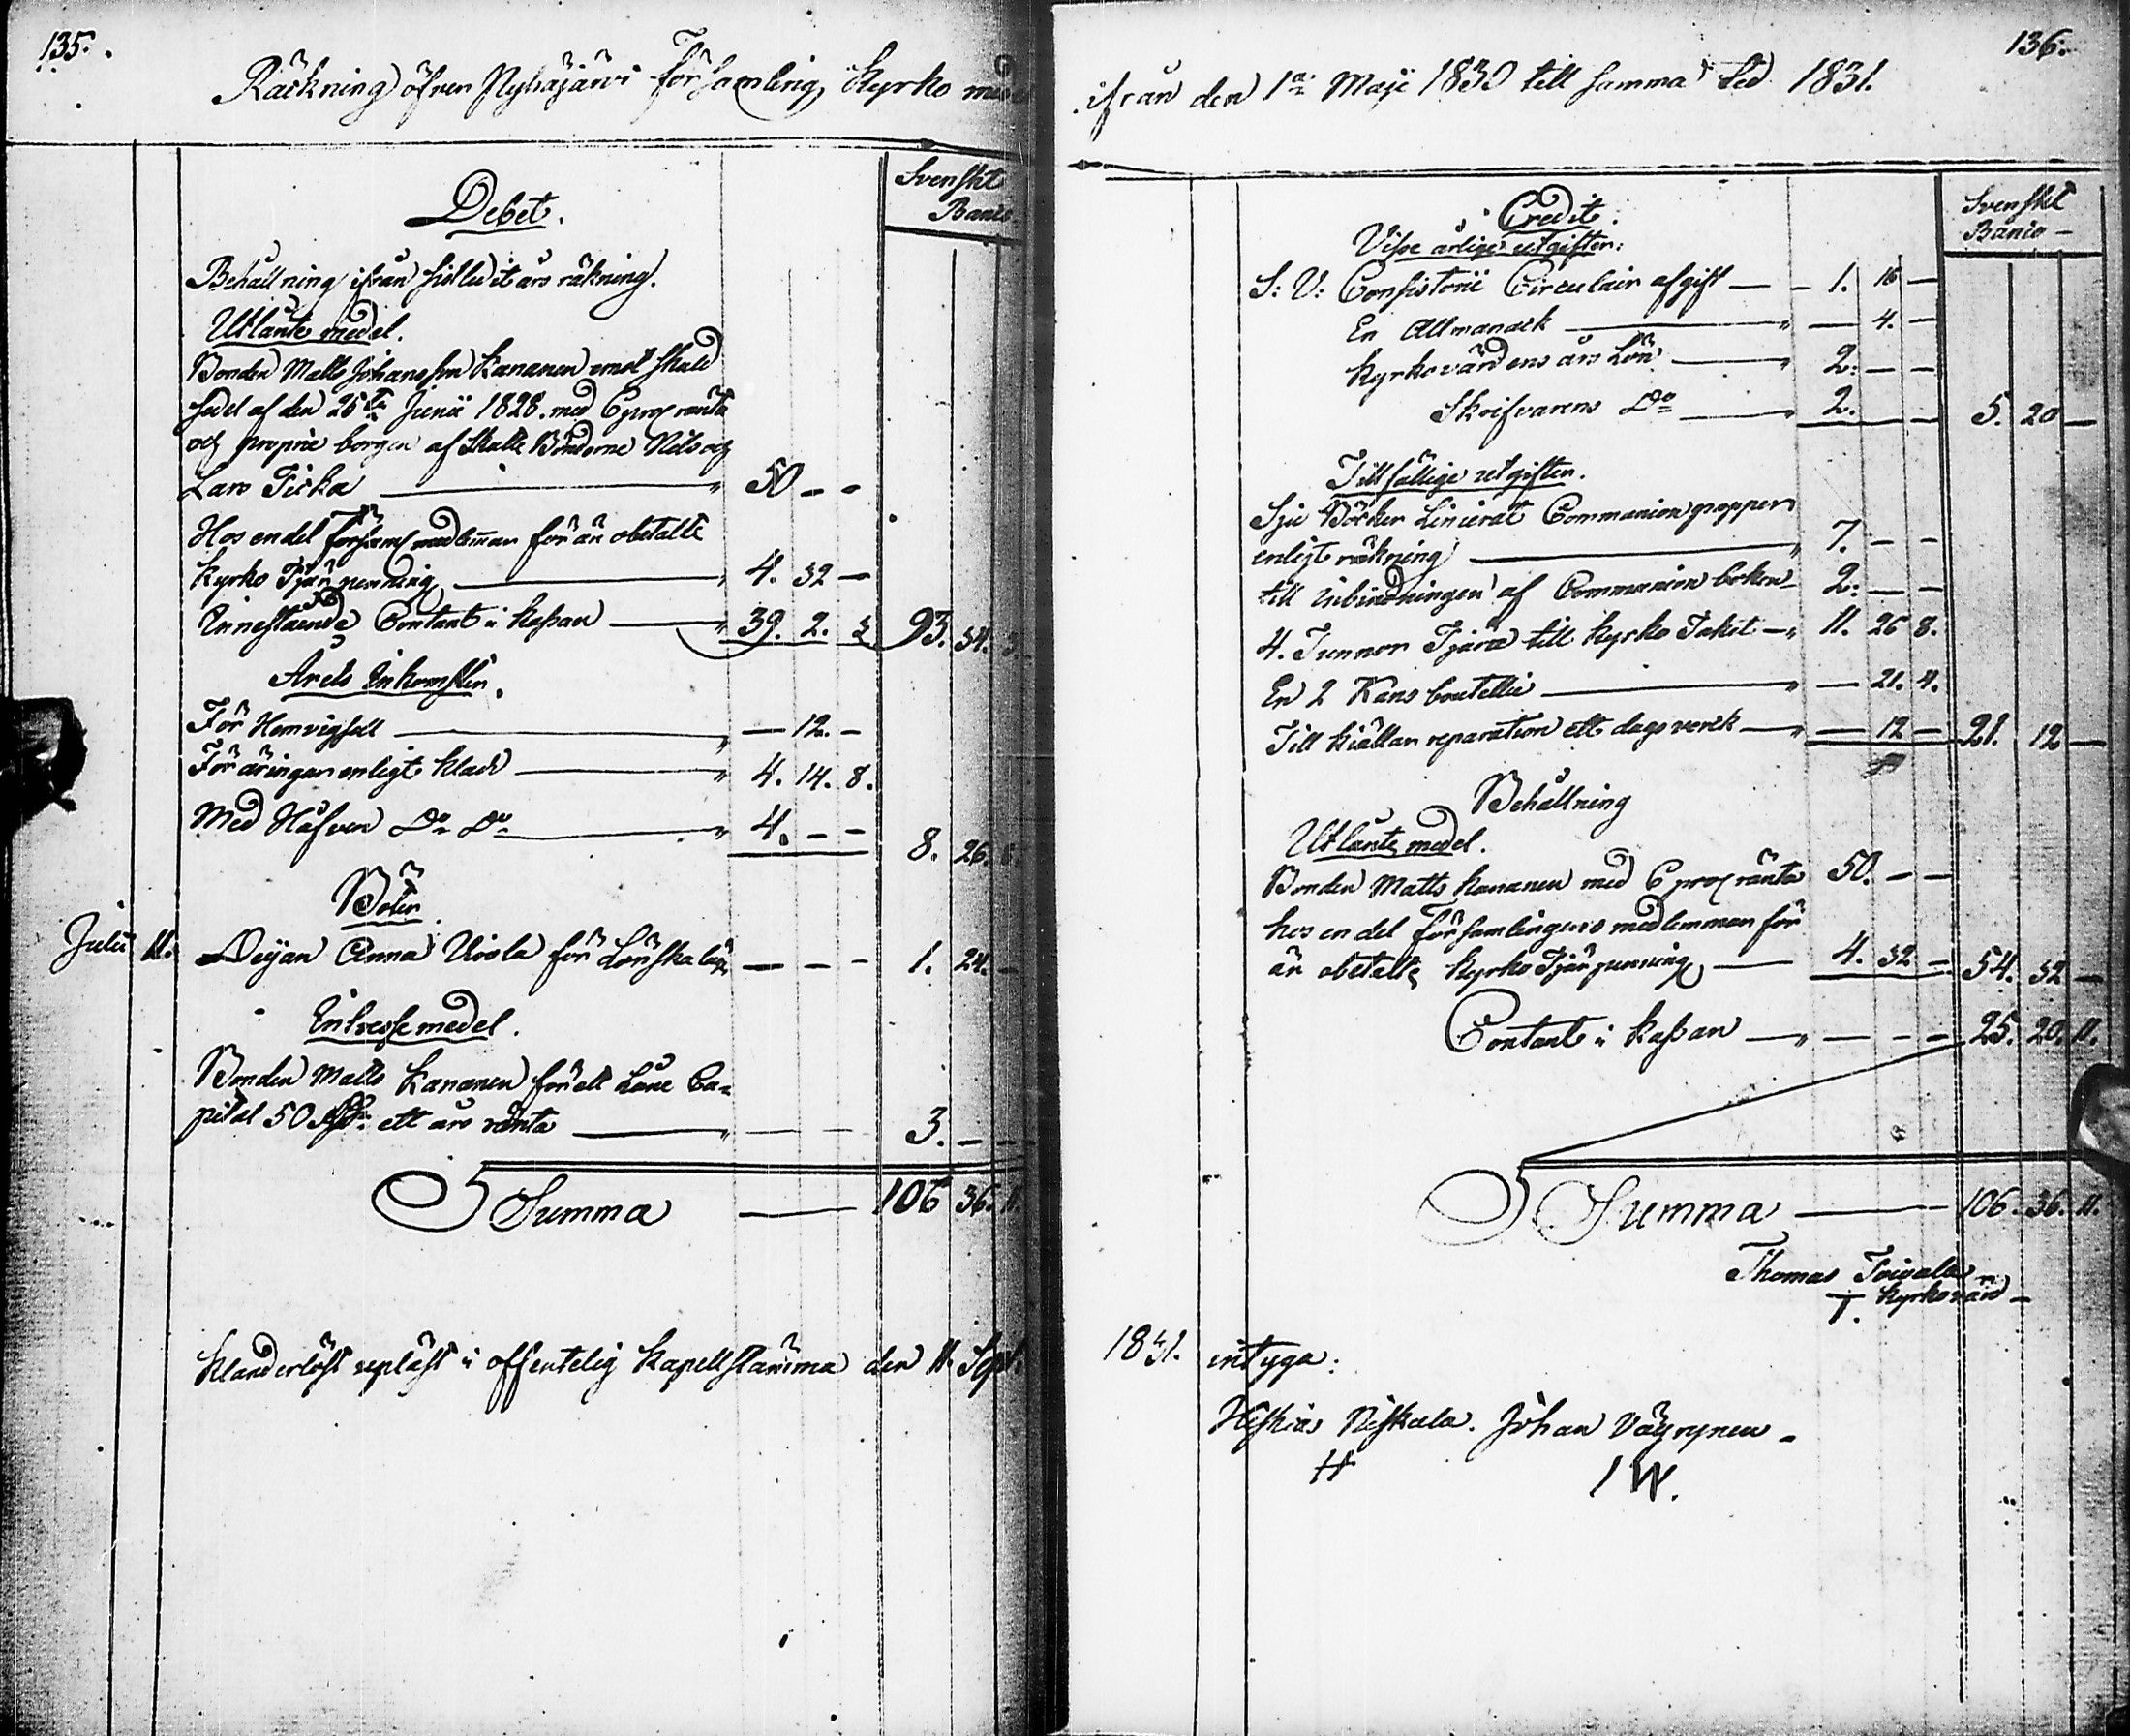 135.
Räckning öfver Pyhäjärvi Församling, Kyrko med
Debet.
Svenskt
Banco
Behållning ifrån sistledit års räkning.
Utlånte medel.
Bonden Matts Johansson Kananen emot skuld
sedel af den 25te Junii 1828. med 6 proc ränta
och proprie borgen af Skatte Bönderne Nils och
Lars Ticka — 50 - -
Hos en del församl medlemmar för än obetalte
Kyrko Tjär penning — 4. 32 -
Innestående Contant i kassan — 39. 2. 3 93. 34. 3.
Årets Inkomster.
För Hemvigsell — - 12. -
Föräringar enligt kladd — 4. 14. 8.
Med Håfven Do Do — 4. - - 8. 26. 8.
Böter
Julii 11. Deijan Anna for Lönskaläge — - - - 1. 24. -
Intresse medel.
Bonden Matts Kananen för ett Låne Ca-
pital 50 ett års ränta — - - 3. - -
Summa — 106 36. 11.
Klanderlöst uppläst i offentelig Kapellstämma den 11. Sept.
136.
ifrån den 1a Maji 1830 till samma tid 1831.
Credit.
Svenskt
Banco -
Visse årliga utgifter:
S: V: Consistorii Circulair afgift — 1. 16 -
En Allmanack — - 4. -
Kyrkovärdens års Lön — 2. - -
Skrifvarens Do — 2. - - 5. 20 -
Tillfällige utgifter.
Sju Böcker Linierat Communion papper
enligt räkning — 7. - -
till inbindningen af Communion boken - 2: - -
4. Tunnor Tjära till Kyrko Taket — 11. 26 8.
En 2 Kans boutellie — - 21. 4.
Till kiällar reparation ett dagsverck — - 12 - 21. 12 -
Behållning
Utlånte medel.
Bonden Matts Kananen med 6 proc ränta 50. - -
hos en del Församlingens medlemmar för
än obetalte Kyrko Tjär penning — 4. 32 - 54. 32 -
Contant i kassan — - - - 25. 20. 11.
Summa — 106. 36. 11.
Thomas Toivola
T. Kyrkovärd -
1831. intyga:
Heskias Niskala. Johan Väyrynen -
H IW.